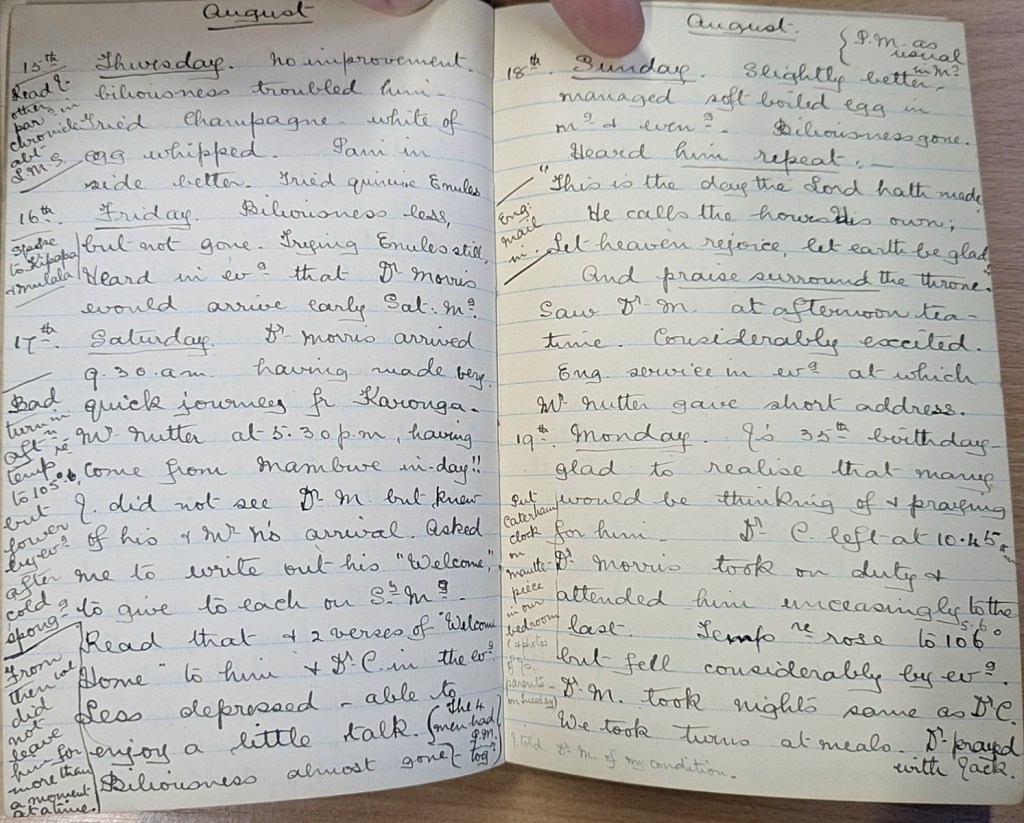 August
15th Thursday. No improvement.
biliousness troubled him.
Tried Champagne - white of
egg whipped. Pain in
side better. Tried quinine Enules
Read J.
others in
par:
chronicle
abt
P.M.S.
16th. Friday. Biliousness less,
but not gone. Trying Enules still,
Heard in evg that Dr Morris
would arrive early Sat: mg.
to Kipapa
& Mulala
17th. Saturday. Dr Morris arrived
9.30.a.m. having made very
quick journey fr Karonga.
Mr Nutter at 5.30 p.m, having
come from Mambwe in-day!!
J. did not see Dr M. but knew
of his & Mr N's arrival. Asked
me to write out his "Welcome,"
to give to each on S. mg.
Read that & 2 verses of "Welcome
Home" to him & Dr C. in the evg
Less depressed - able to
enjoy a little talk. {The 4
men had
P.M.
togr}
Biliousness almost gone
Bad
turn in
aftn
tempre
to 105°.6,
but
lower
by evg
after
cold
spongg
From
then
did
not
leave
him for
more than
a moment
at a time.
August.
{P.M. as
usual
in mg
18th. Sunday. Slightly better,
managed soft boiled egg in
mg & eveng. Biliousness gone.
Heard him repeat, —
"This is the day the Lord hath made,
He calls the hours His own;
Let heaven rejoice, let earth be glad
And praise surround the throne."
Saw Dr M. at afternoon tea-
time. Considerably excited.
Eng. service in evg at which
Mr Nutter gave short address.
Eng:
mail
in.
19th. Monday. J's 35th birthday -
glad to realise that many
would be thinking of & praying
for him. Dr C. left at 10.45 am
Dr Morris took on duty &
attended him unceasingly to the
last. Tempre rose to 105.6° 106°
but fell considerably by evg.
Dr M. took nights same as Dr C.
We took turns at meals. Dr prayed
with Jack.
Put
Caterham
clock
on
mantle-
piece
in our
bedroom
(& photos
of
parents -
on Tuesday)
J. told Dr M. of my condition.